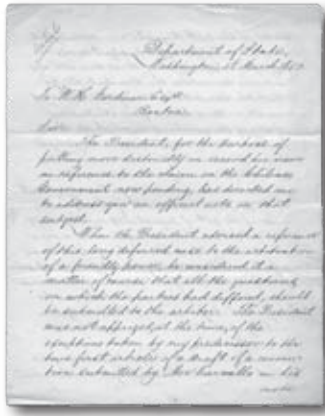 Department of State,
Washington, March
To W. H. Gardiner Esqr.
Boston.
Sir:
The President, for the purpose of
putting more distinctly on record his views
in reference to the claim on the Chilean
Government now pending, has directed me
to address you an official note on that
subject.
When the President advised a reference
of this long deferred case to the arbitration
of a friendly power, he considered it a
matter of course that all the questions
on which the parties had differed, should
be submitted to the arbiter. The President
was not apprized, at the time, of the
exceptions taken by my predecessor to the
two first articles of a draft of a conven-
tion submitted by Mr Carvallo in his
note